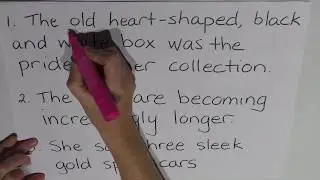 1. The old heart-shaped, black
and box was the
pride collection.
2. The are becoming
longer.
She three sleek
gold cars